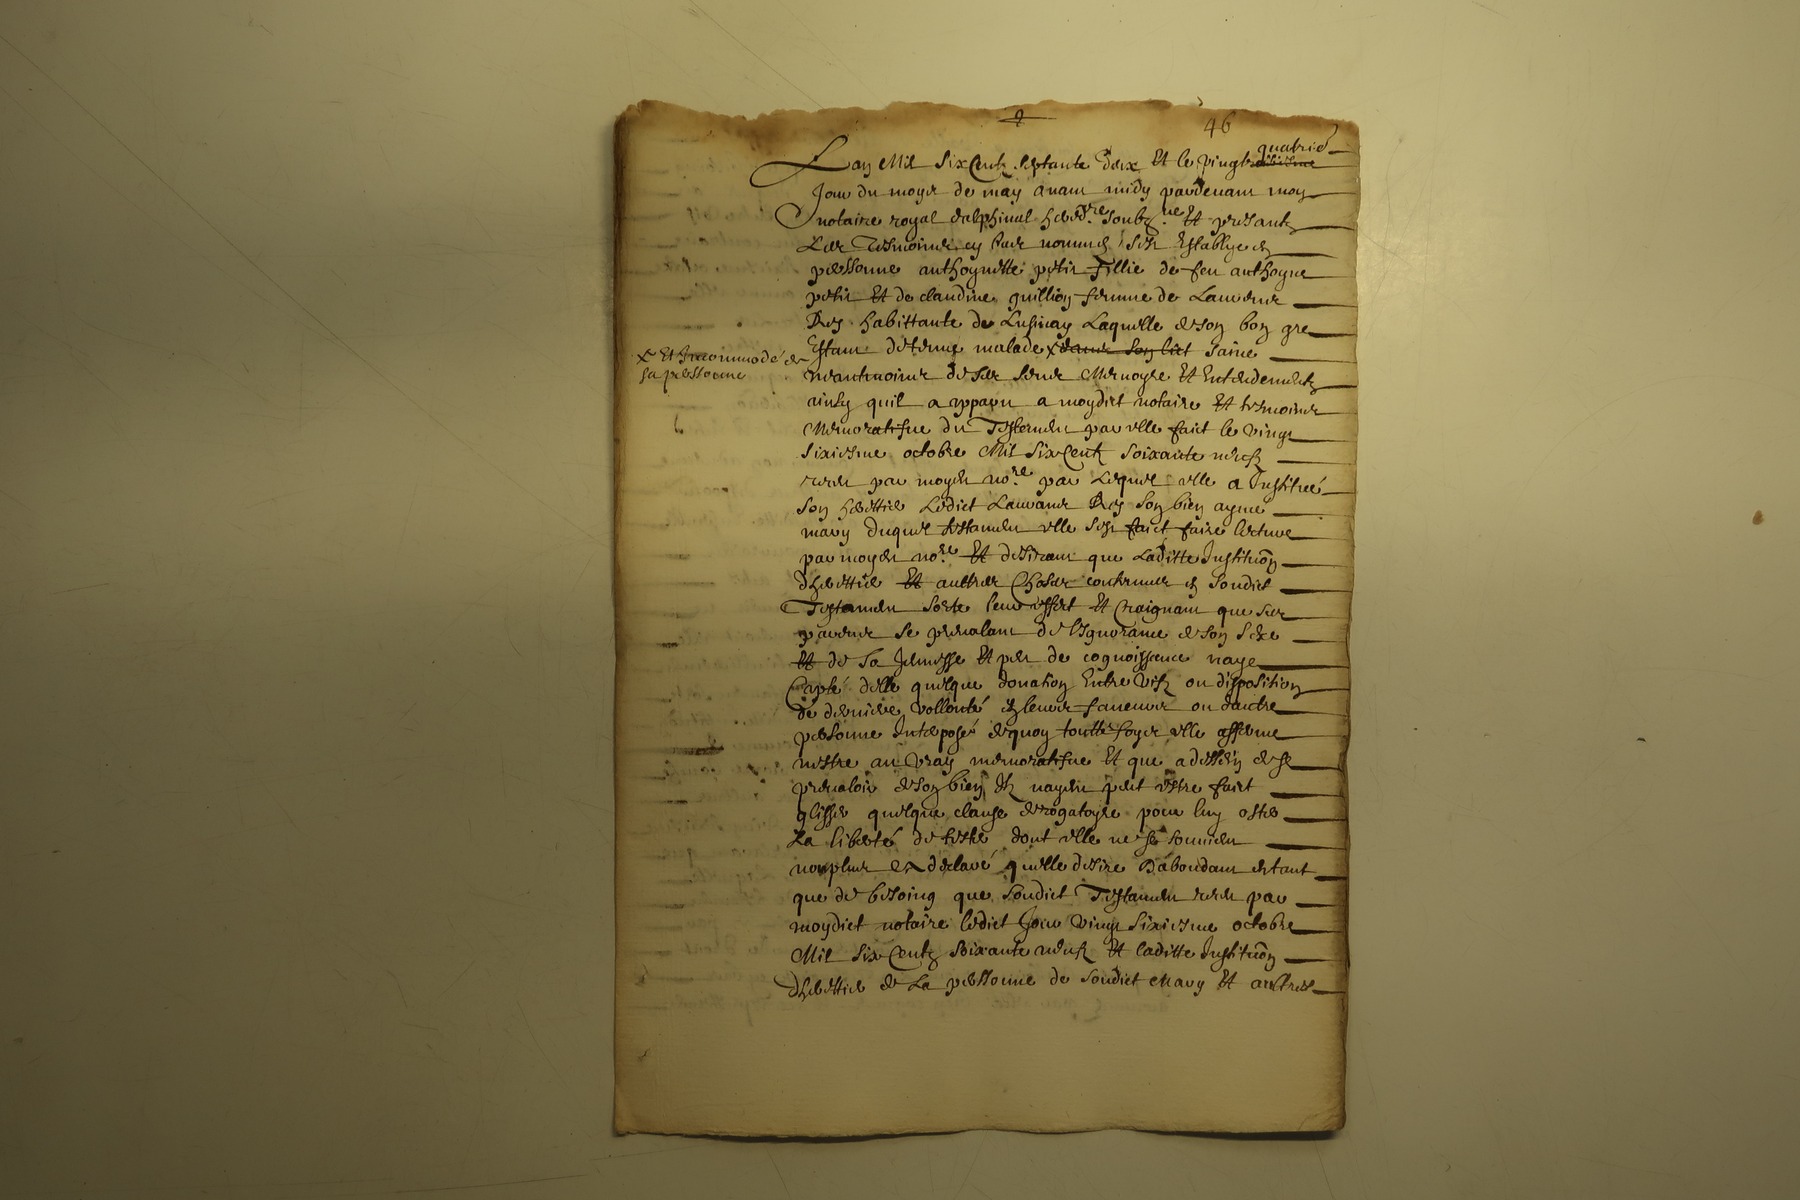 46
quatrie
Lan Mil Six Centz Septante deix Et le vingt
Jour du moys de may avant midy pardevant moy
notaire royal delphinal hered.re soubz.ne Et presantz
Les Tesmoines cy bas nommes sest Establye en
personne anthoynette petit fillie de feu anthoyne
petit Et de claudine guillion femme de Laurens
Rey habittante de Lusinay Laquelle de son bon gre
Estant detenue malade x dans son lict saine
x Et Incommodé de
sa personne
neantmoins de ses sens Memoyre Et Entendementz
ainsy quil a appareu a moydict notaire Et tesmoins
Memoratifue du Testament par elle faict le vingt
sixiesme octobre Mil Six Centz soixante neufz
receu par moyd no.re par Lequel elle a Institué
son herettier Ledict Laurans Rey son bien aymé
mary duquel testament elle sest faict faire lecture
par moyd no.re Et desirant que Laditte Institu͠on
dherettier Et aultres Choses contenues en soudict
Testament sorte leur effect Et Craignant que ses
parens se prevalant de lignorance de son sexe
Et de sa Jeunesse Et peu de cognoissence naye
Capté delle quelque donation Entre vifz ou disposition
de derniere vollonté en leurs faveurs ou dautre
personne Interposé dequoy toutte foys elle afferme
nestre au vray memoratifue Et que a dessein de se
prevaloir de son bien Ilz nayent peut estre faict
glisser quelque clause derogatoyre pour luy oster
La liberté de tester dont elle ne se souvien
non plus declaré quelle desire dabondant entant
que de besoing que soudict Testament receu par
moydict notaire ledict Jour vingt sixiesme octobre
Mil Six Centz soixante neufz Et laditte Institu͠on
dherettier de La personne de soudict Mary Et aultres